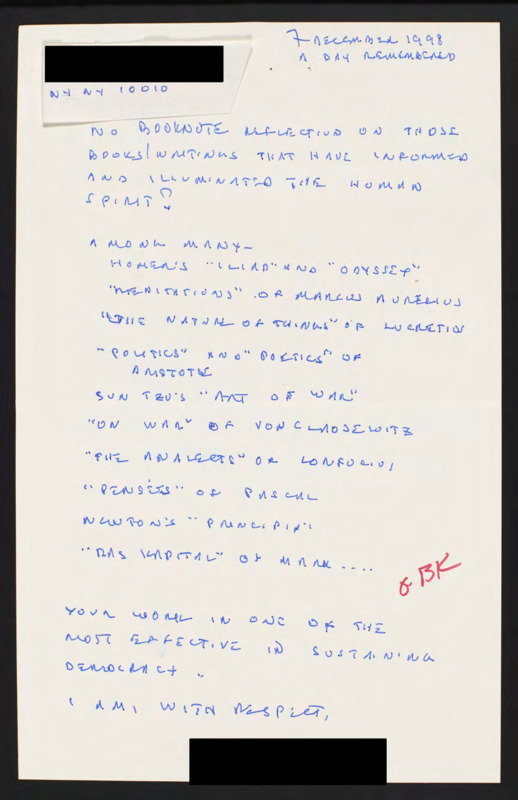 7 DECEMBER 1998
A DAY REMEMBERED
NY NY 10010
NO BOOKNOTE REFLECTIVE ON THOSE
BOOKS/WRITINGS THAT HAVE INFORMED
AND ILLUMINATED THE HUMAN
SPIRIT?
AMONG MANY—
HOMER'S "ILIAD" AND "ODYSSEY"
"MEDITATIONS" OF MARCUS AURELIUS
"THE NATURE OF THINGS" OF LUCRETIUS
"POLITICS" AND "POETICS" OF
ARISTOTLE
SUN TZU'S "ART OF WAR"
"ON WAR" OF VON CLAUSEWITZ
"THE ANALECTS" OF CONFUCIUS
"PENSÉES" OF PASCAL
NEWTON'S "PRINCIPIA"
"DAS KAPITAL" OF MARX ....
BK
YOUR WORK IN ONE OF THE
MOST EFFECTIVE IN SUSTAINING
DEMOCRACY.
I AM, WITH RESPECT,